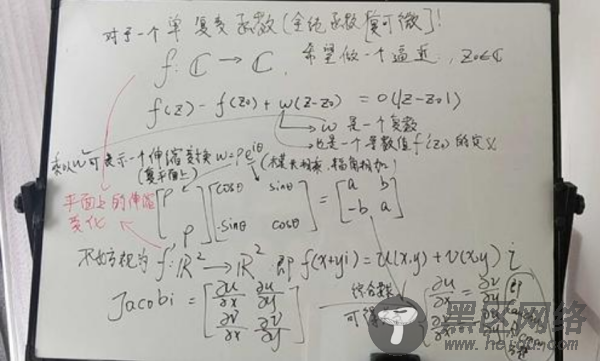 对于一个单复变函数(全纯函数 复可微)!
f: ℂ → ℂ, 希望做一个逼近, z₀∈ℂ
f(z) - f(z₀) + w(z-z₀) = o(|z-z₀|)
w 是一个复数
也是一个导数值 f'(z₀) 的定义
乘以w可表示一个伸缩变换 w=ρe^{iθ}
(复平面上) (长度相乘, 辐角相加)
平面上的伸缩变化
[ρ ρ] [cosθ sinθ -sinθ cosθ] = [a b -b a]
不妨视为 f: ℝ² → ℝ² 即 f(x+yi) = u(x,y) + v(x,y) i
Jacobi = [∂u/∂x ∂u/∂y ∂v/∂x ∂v/∂y]
综合
可得
∂u/∂x = ∂v/∂y 即
黑区网络
www.heiqu.com